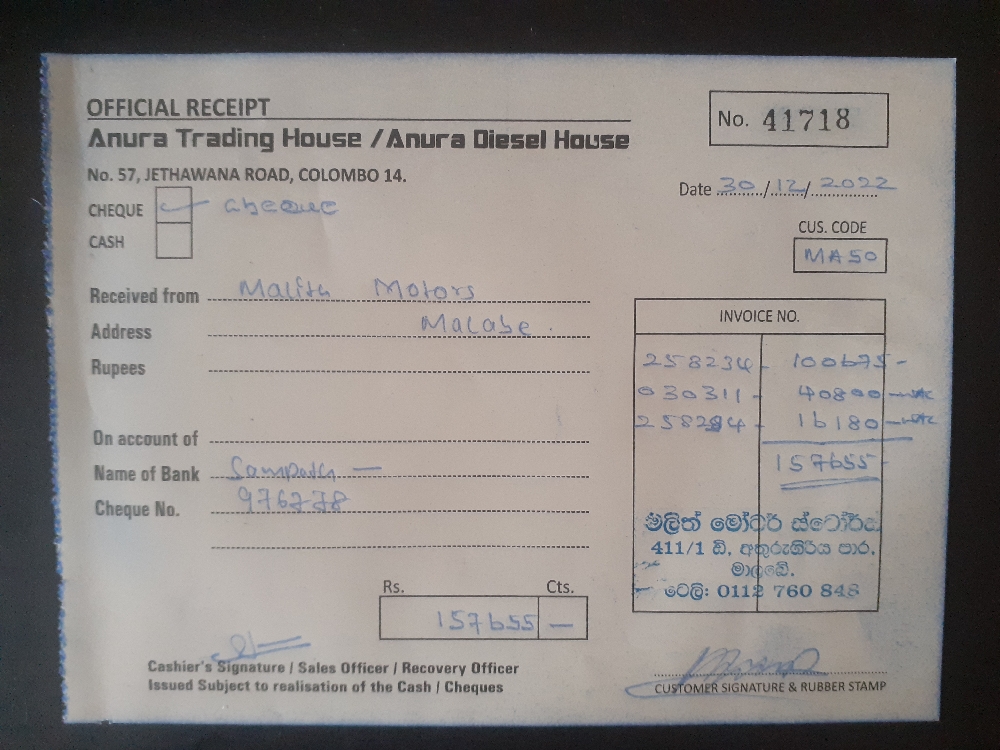 OFFICIAL RECEIPT
Anura Trading House / Anura Diesel House
No. 57, JETHAWANA ROAD, COLOMBO 14.
No. 41718
Date 30/12/2022
CHEQUE cheque
CASH
CUS. CODE
MA50
Received from Malith Motors
Address Malabe.
Rupees
On account of
Name of Bank Sampath —
Cheque No. 976778
INVOICE NO.
258234 - 100675 -
030311 - 40800 -
258284 - 16180 -
157655 -
මලිත් මෝටර් ස්ටෝර්ස්
411/1 ඩී, අතුරුගිරිය පාර,
මාලබේ.
ටෙලි: 0112 760 848
Rs. Cts.
157655 —
Cashier's Signature / Sales Officer / Recovery Officer
Issued Subject to realisation of the Cash / Cheques
CUSTOMER SIGNATURE & RUBBER STAMP